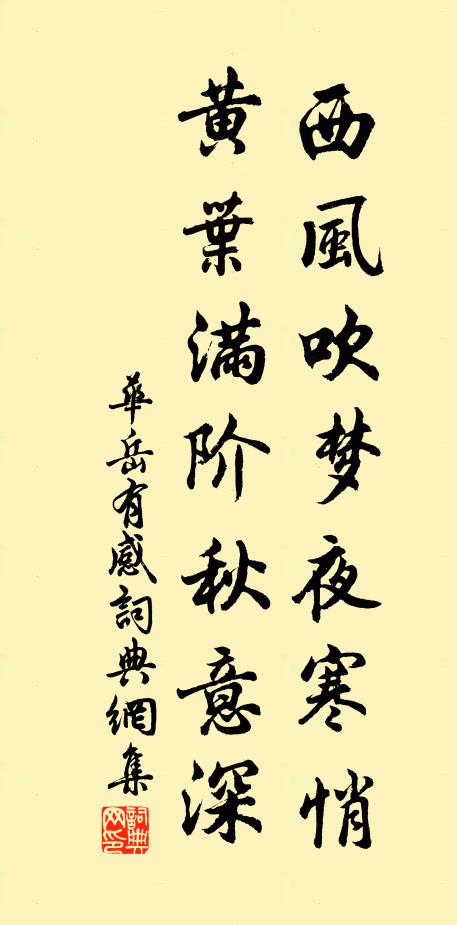 西風吹梦夜寒悄
黄葉滿阶秋意深
華岳有感詞典網集
詞典網印